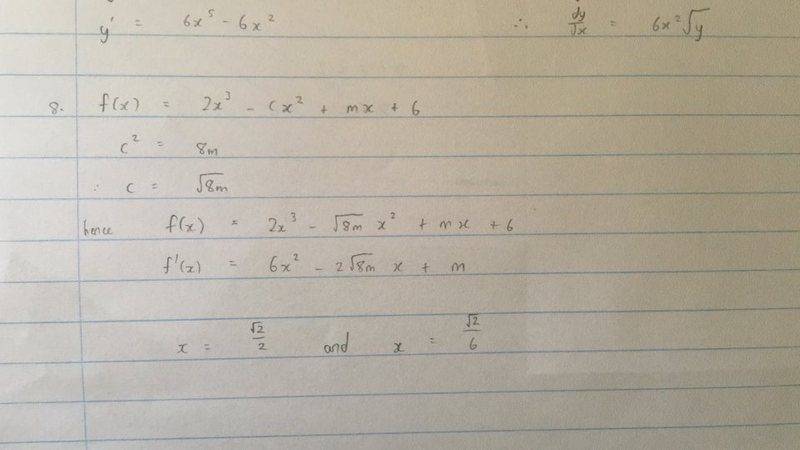 y' = 6x⁵ - 6x² ∴ dy/dx = 6x²√y
8. f(x) = 2x³ - cx² + mx + 6
c² = 8m
∴ c = √8m
hence f(x) = 2x³ - √8m x² + mx + 6
f'(x) = 6x² - 2√8m x + m
x = √2/2 and x = √2/6